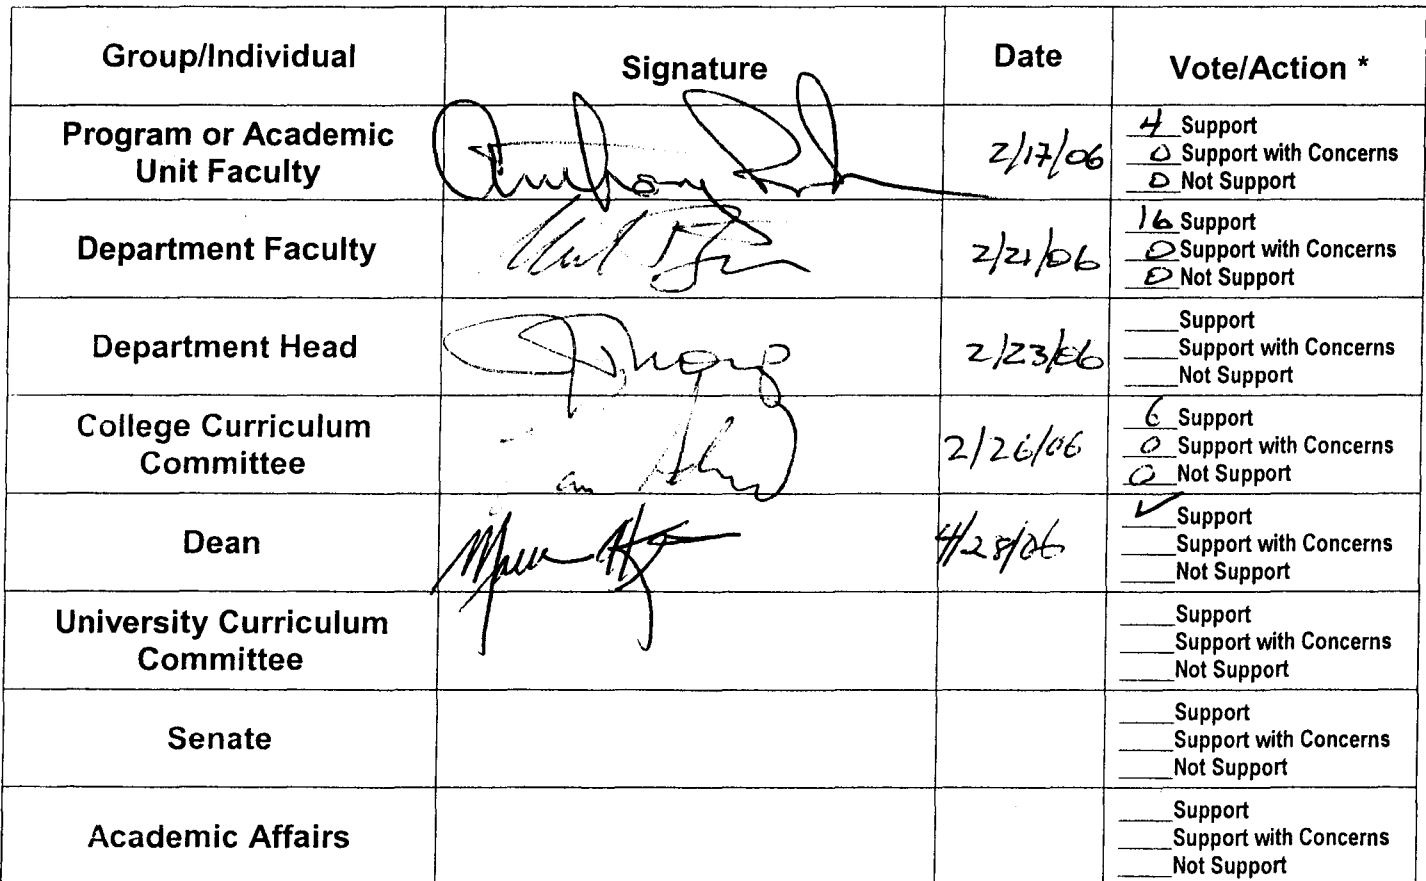 Group/Individual
Signature
Date
Vote/Action *
Program or Academic
Unit Faculty
Anthony
2/17/06
4 Support
0 Support with Concerns
0 Not Support
Department Faculty
2/21/06
16 Support
0 Support with Concerns
0 Not Support
Department Head
2/23/06
Support
Support with Concerns
Not Support
College Curriculum
Committee
2/26/06
6 Support
0 Support with Concerns
0 Not Support
Dean
4/28/06
✓ Support
Support with Concerns
Not Support
University Curriculum
Committee
Support
Support with Concerns
Not Support
Senate
Support
Support with Concerns
Not Support
Academic Affairs
Support
Support with Concerns
Not Support